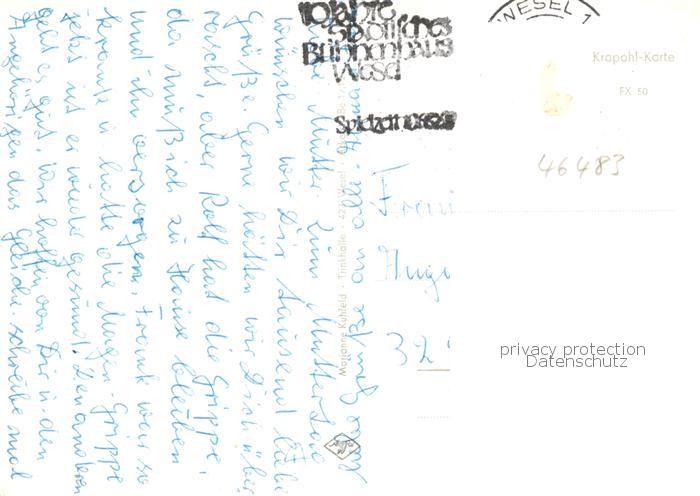 10 Jahre
Städtisches
Bühnenhaus
Wesel
Spielzeit
WESEL 1
Krapohl-Karte
FX 50
46483
Mutter. Zum Muttertag
wünschen wir Dir tausend liebe
Grüße. Gerne hätten wir Dich über-
rascht, aber Rolf hat die Grippe,
da muß ich zu Hause bleiben
und ihn versorgen, Frank war so
krank u. hatte die Magen-Grippe
jetzt ist er wieder gesund. Den anderen
geht es gut, wir hoffen von Dir u. den
Angehörigen das gleiche. schreibe mal
Grüße an alle
Marianne Kuhfeld · Trinkhalle · 423 Wesel
Agfa
Frau
32
privacy protection
Datenschutz